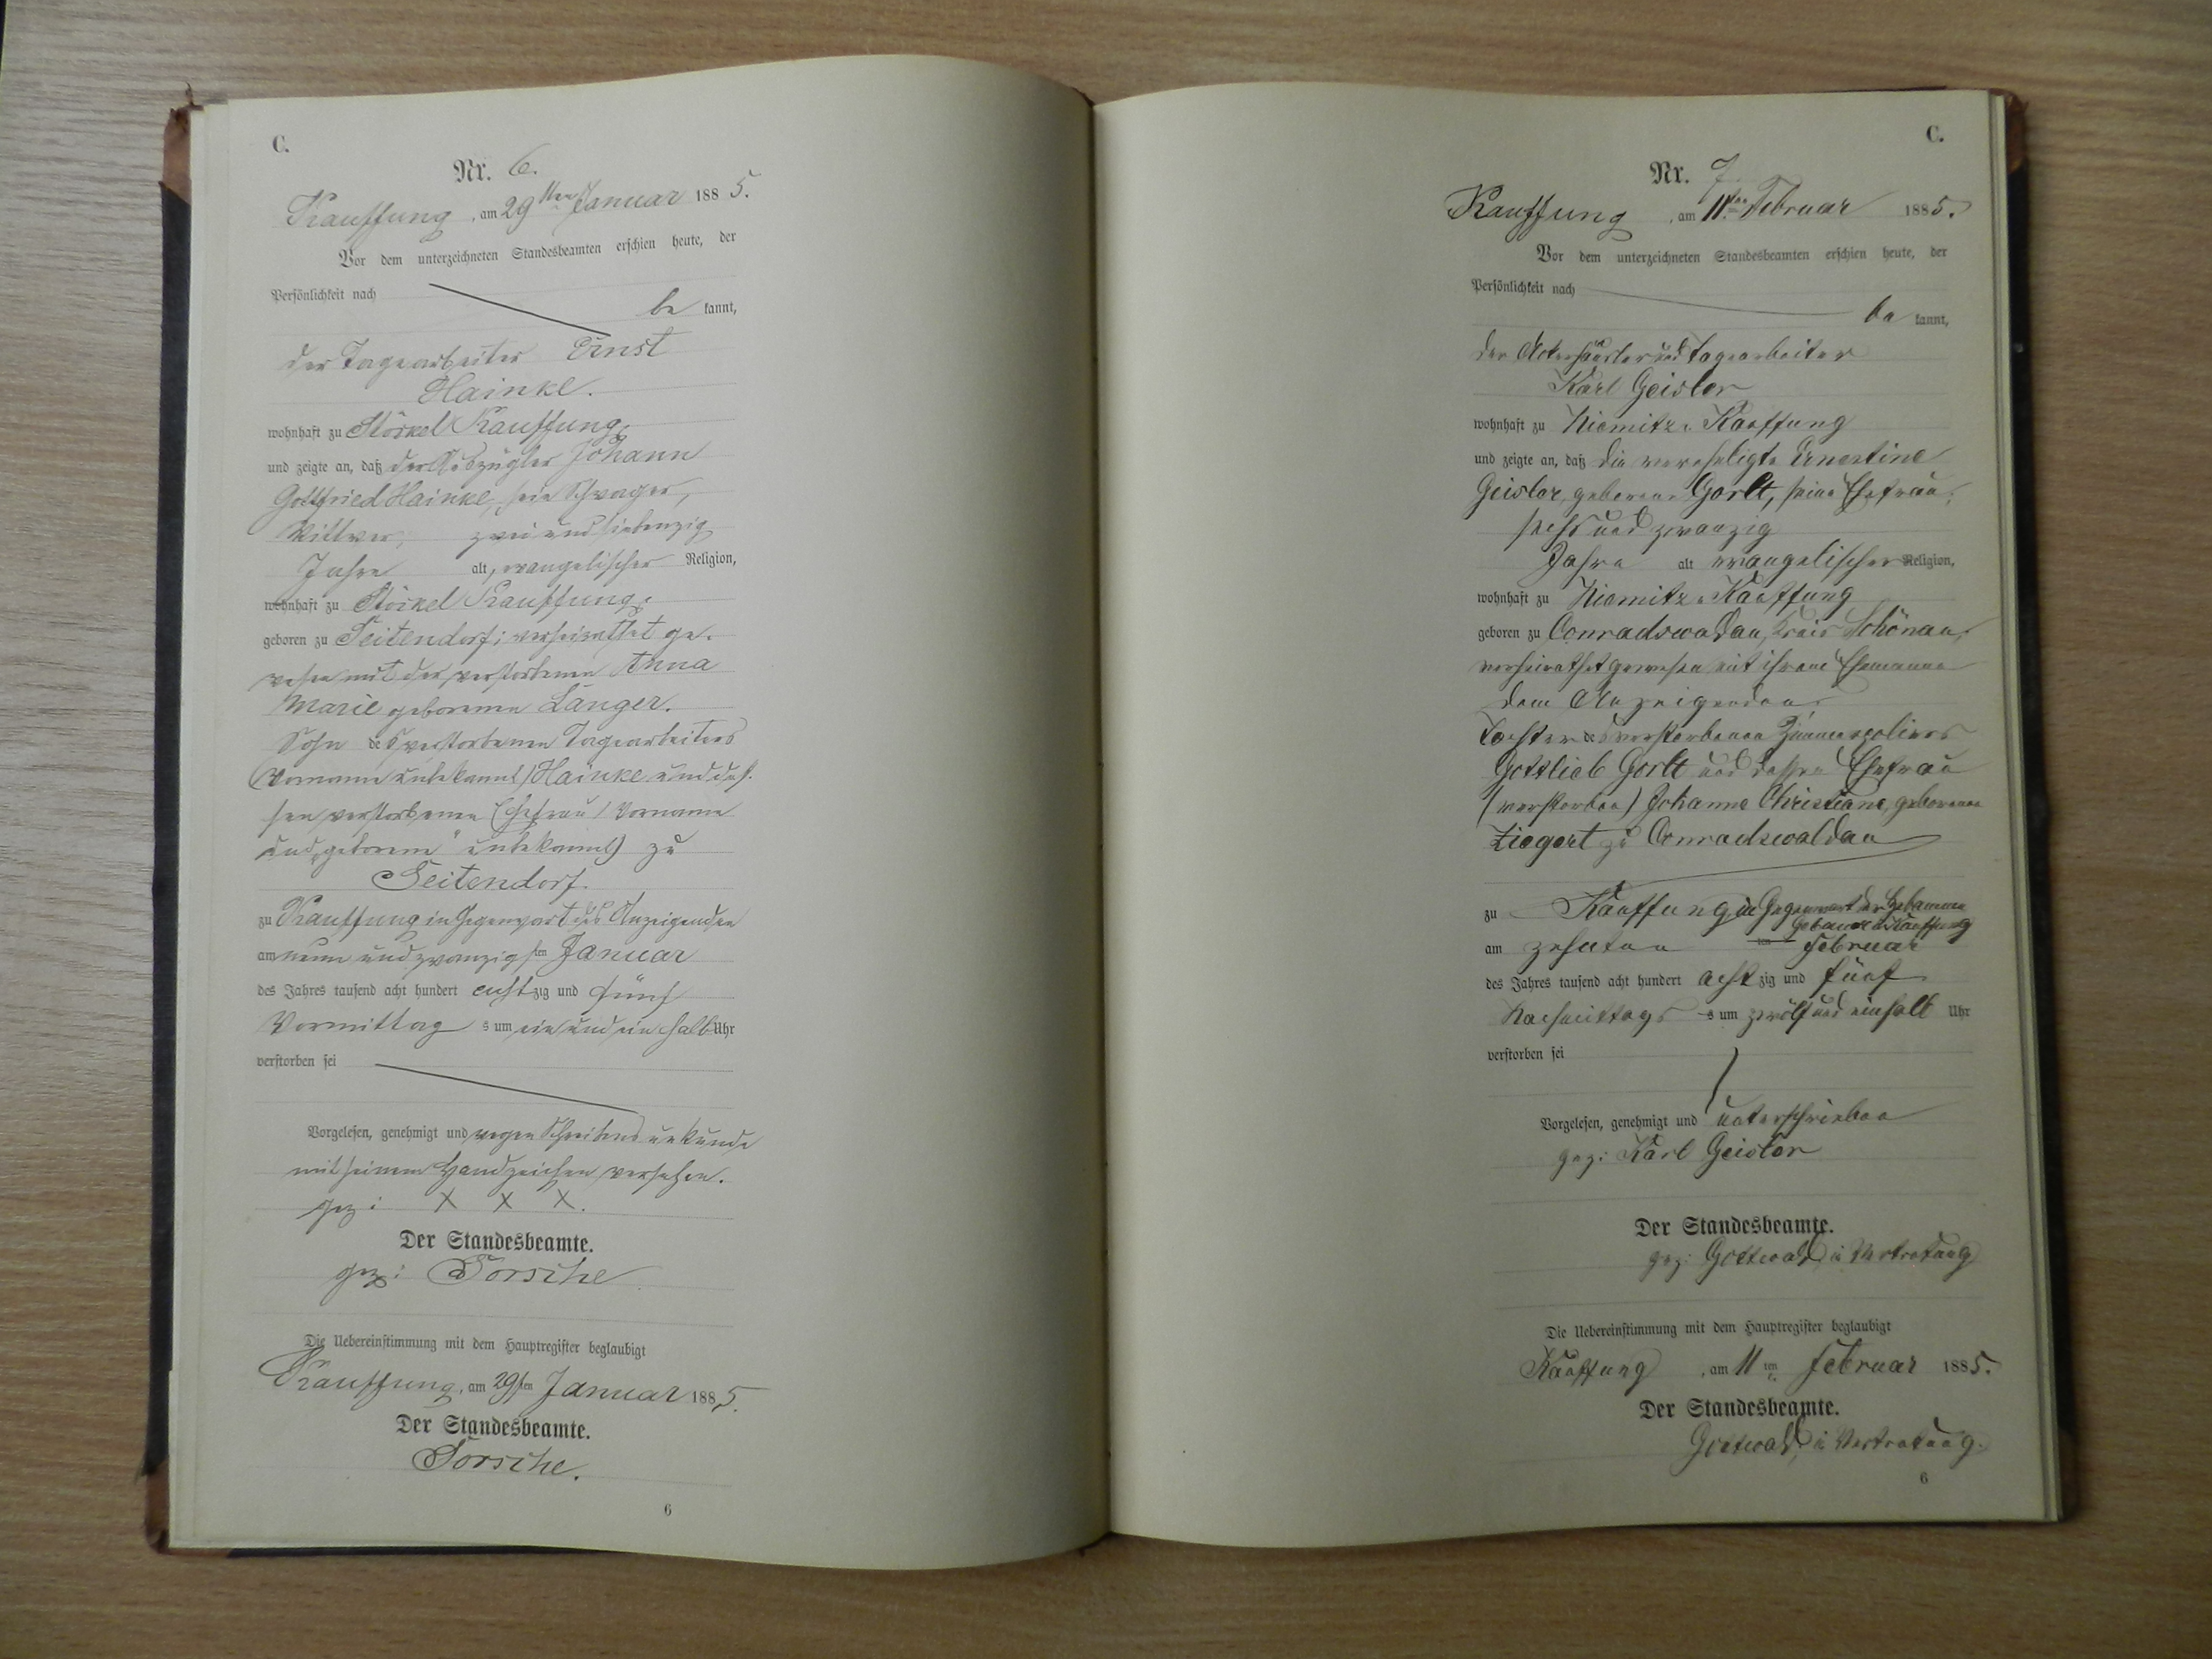 C.
Nr. 6.
Kauffung, am 29ten Januar 1885.
Vor dem unterzeichneten Standesbeamten erschien heute, der
Persönlichkeit nach
be kannt,
der Tagearbeiter Ernst
Hainke.
wohnhaft zu Stöckel Kauffung,
und zeigte an, daß der Auszügler Johann
Gottfried Hainke, sein Schwager,
Wittwer, zwei und siebenzig
Jahre alt, evangelischer Religion,
wohnhaft zu Stöckel Kauffung,
geboren zu Seitendorf; verheirathet ge-
wesen mit der verstorbenen Anna
Marie geborenen Langer.
Sohn des verstorbenen Tagearbeiters
(Vorname unbekannt) Hainke und des-
sen verstorbenen Ehefrau (Vorname
und „geborene" unbekannt) zu
Seitendorf.
zu Kauffung in Gegenwart des Anzeigenden
am neun und zwanzigsten Januar
des Jahres tausend acht hundert achtzig und fünf
Vormittags um ein und ein halb Uhr
verstorben sei
Vorgelesen, genehmigt und wegen Schreibensunkunde
mit seinem Handzeichen versehen.
gez: X X X.
Der Standesbeamte.
gez: Torsche
Die Uebereinstimmung mit dem Hauptregister beglaubigt
Kauffung, am 29sten Januar 1885.
Der Standesbeamte.
Torsche.
6
C.
Nr. 7
Kauffung, am 11ten Februar 1885.
Vor dem unterzeichneten Standesbeamten erschien heute, der
Persönlichkeit nach
be kannt,
der Ackerhäusler und Tagearbeiter
Karl Geisler
wohnhaft zu Niemitz-Kauffung
und zeigte an, daß die verehelichte Ernestine
Geisler, geborene Gorlt, seine Ehefrau,
sechs und zwanzig
Jahre alt evangelischer Religion,
wohnhaft zu Niemitz-Kauffung
geboren zu Conradswaldau, Kreis Schönau,
verheirathet gewesen mit ihrem Ehemanne
dem Anzeigenden,
Tochter des verstorbenen Zimmerpoliers
Gottlieb Gorlt und dessen Ehefrau
(verstorben) Johanne Christiane, geborenen
Ziegert zu Conradswaldau
zu Kauffung in Gegenwart der Hebamme
Gebauer in Kauffung
am zehnten Februar
des Jahres tausend acht hundert acht zig und fünf
Nachmittags um zwölf und einhalb Uhr
verstorben sei
Vorgelesen, genehmigt und unterschrieben
gez: Karl Geisler
Der Standesbeamte.
gez: Gottwald, in Vertretung
Die Uebereinstimmung mit dem Hauptregister beglaubigt
Kauffung, am 11ten Februar 1885.
Der Standesbeamte.
Gottwald, in Vertretung.
6